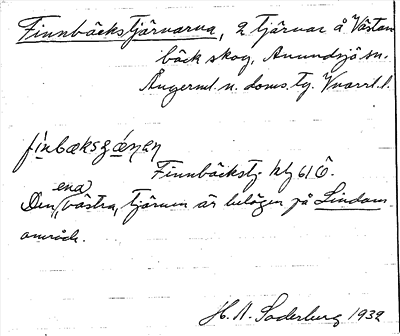 Finnbäckstjärnarna, 2 tjärnar å Västan
bäck skog, Anundsjö sn.
Ångerml. n. doms. Tg. Vnorrl. l.
Finnbäckstj. kbl 61 Ö.
Den ena, västra, tjärnen är belägen på Lindom.
område.
H. A. Söderberg 1932